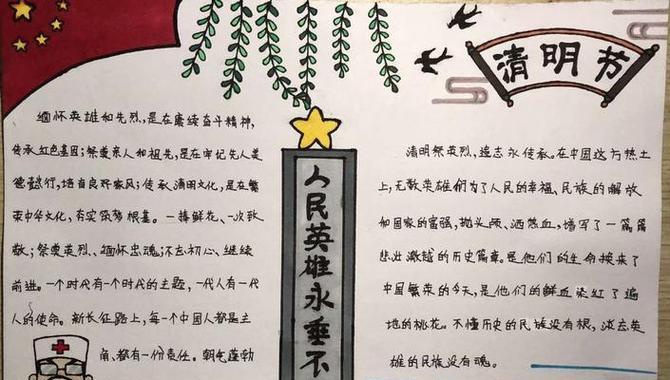 清明节
人民英雄永垂不
缅怀英雄和先烈,是在赓续奋斗精神,
传承红色基因;祭奠亲人和祖先,是在牢记先人美
德懿行,培育良好家风;传承清明文化,是在繁
荣中华文化,夯实筑梦根基。一捧鲜花、一次致
敬;祭奠英烈、缅怀忠魂;不忘初心、继续
前进。一个时代有一个时代的主题,一代人有一代
人的使命。新长征路上,每一个中国人都是主
角、都有一份责任。朝气蓬勃
清明祭英烈,追志永传承。在中国这方热土
上,无数英雄们为了人民的幸福、民族的解放
和国家的富强,抛头颅、洒热血,谱写了一篇篇
悲壮激越的历史篇章。是他们的生命换来了
中国繁荣的今天,是他们的鲜血染红了遍
地的桃花。不懂历史的民族没有根,淡忘英
雄的民族没有魂。